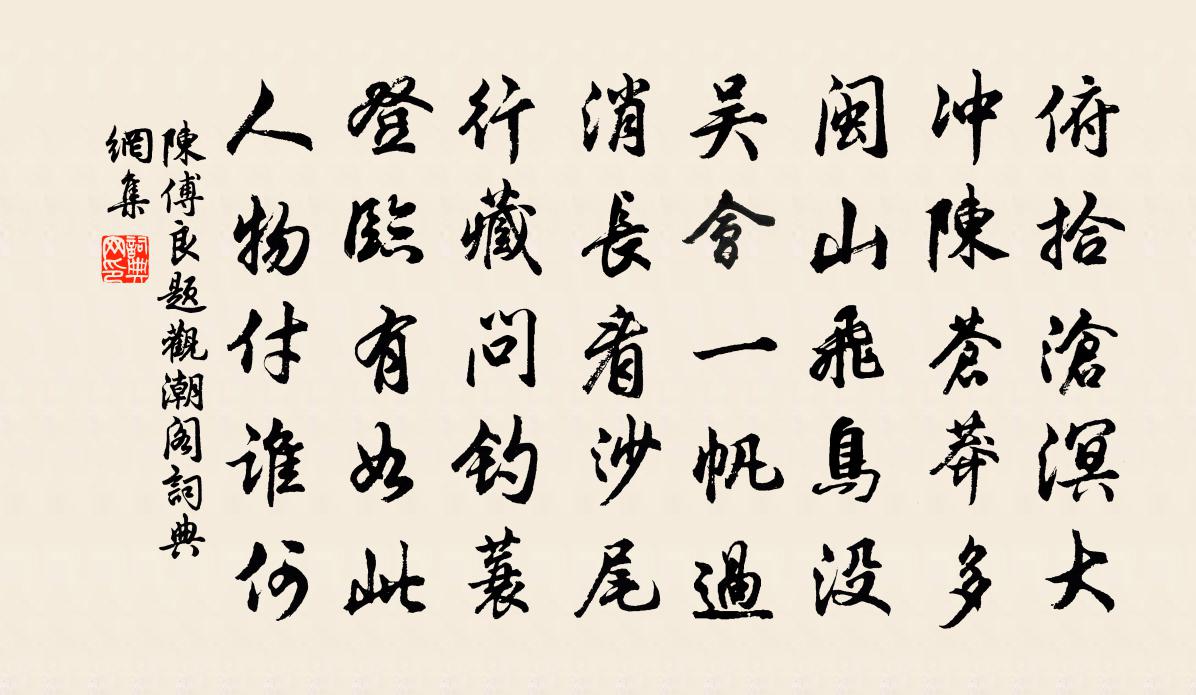 俯拾滄溟大
冲陳蒼莽多
閩山飛鳥没
吴會一帆過
消長看沙尾
行藏問釣蓑
登臨有如此
人物付誰何
陳傅良題觀潮阁詞典
網集
詞典
网印